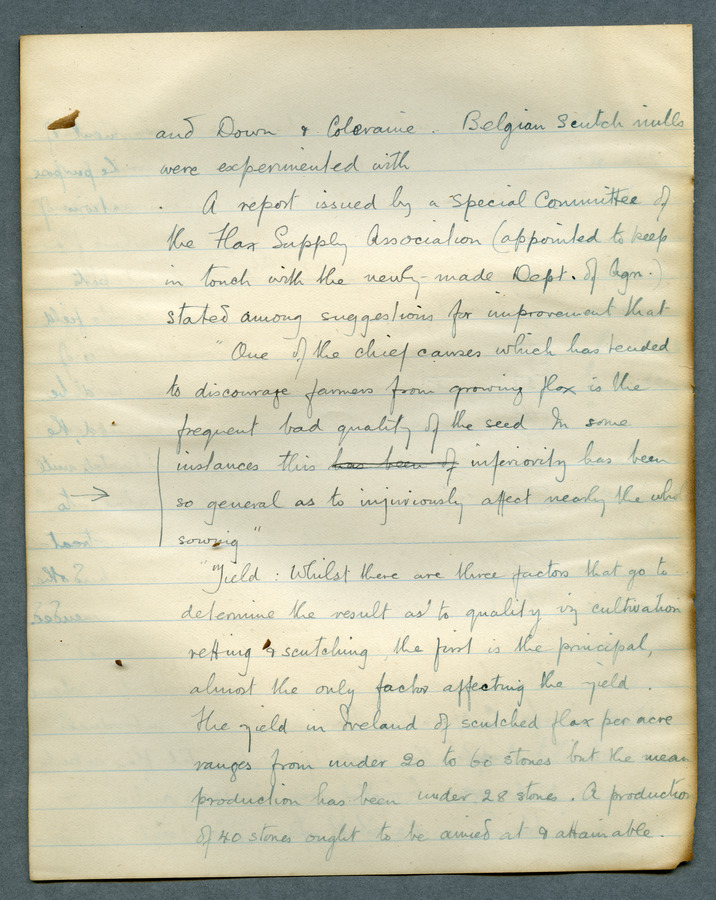 and Down & Coleraine. Belgian Scutch mills
were experimented with
. A report issued by a Special Committee of
the Flax Supply Association (appointed to keep
in touch with the newly-made Dept. of Agri.)
stated among suggestions for improvement that
"One of the chief causes which has tended
to discourage farmers from growing flax is the
frequent bad quality of the seed In some
instances this has been of inferiority has been
so general as to injuriously affect nearly the whol
sowing"
"Yield: Whilst there are three factors that go to
determine the result as to quality viz cultivation
retting & scutching, the first is the principal,
almost the only factor affecting the yield.
The yield in Ireland of scutched flax per acre
ranges from under 20 to 60 stones but the mean
production has been under 28 stones. A production
of 40 stones ought to be aimed at & attainable.